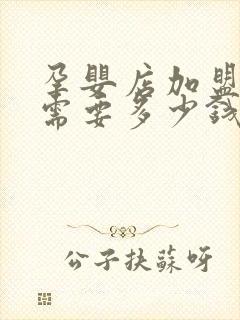 孕嬰店加盟
需要多少錢
公子扶蘇呀